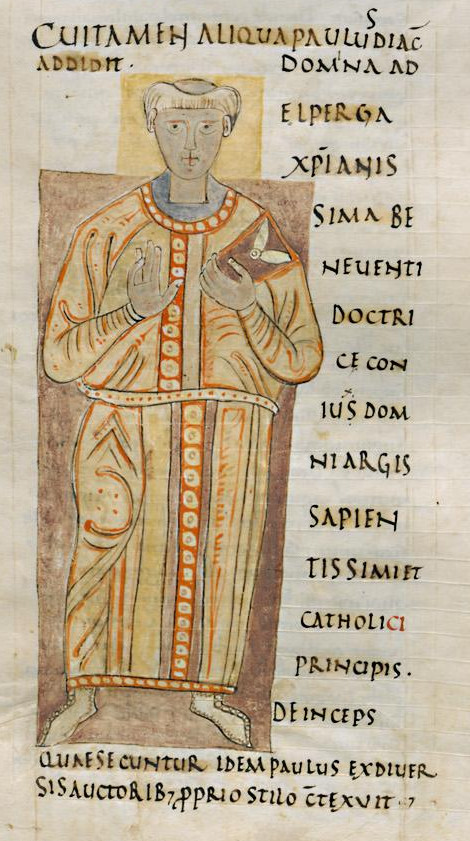 CUITAMEN ALIQUA PAULUS DIAC̄
ADDIDIT. DOMNA AD
ELPERGA
XP̄IANIS
SIMA BE
NEVENTI
DOCTRI
CE CON
IUS DOM
NI ARGIS
SAPIEN
TISSIMI ET
CATHOLICI
PRINCIPIS.
DEINCEPS
QUAE SECUNTUR IDEM PAULUS EX DIVER
SIS AUCTORIB; ꝓPRIO STILO C̄TEXUIT